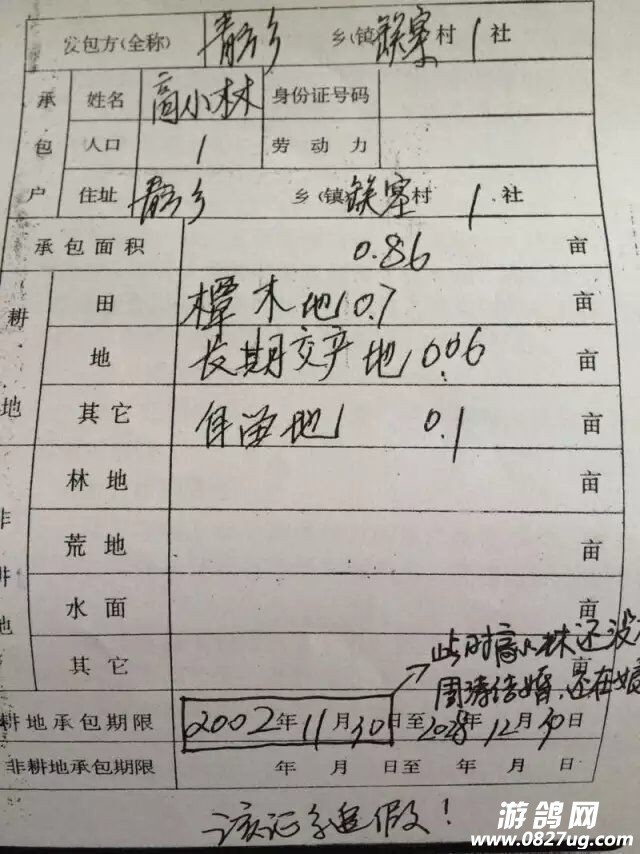 发包方(全称) 青 乡 乡(镇) 铁寨 村 1 社
承包户 姓名 高小林 身份证号码
人口 1 劳动力
住址 青 乡 乡(镇) 铁寨 村 1 社
承包面积 0.86 亩
耕地 田 樟木地1 0.7 亩
地 长期交产地1 0.06 亩
其它 自留地1 0.1 亩
非耕地 林地 亩
荒地 亩
水面 亩
其它 亩
此时高小林还没
周 结婚,还在娘
耕地承包期限 2002年11月30日至2028年12月30日
非耕地承包期限 年 月 日至 年 月 日
该证系造假!
游鸽网
www.0827ug.com